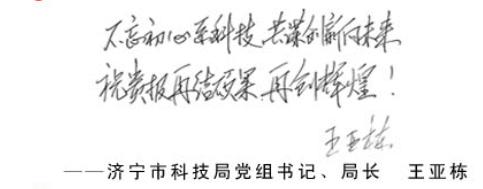 不忘初心系科技,共谋创新向未来
祝贵报再结硕果,再创辉煌!
王亚栋
——济宁市科技局党组书记、局长 王亚栋